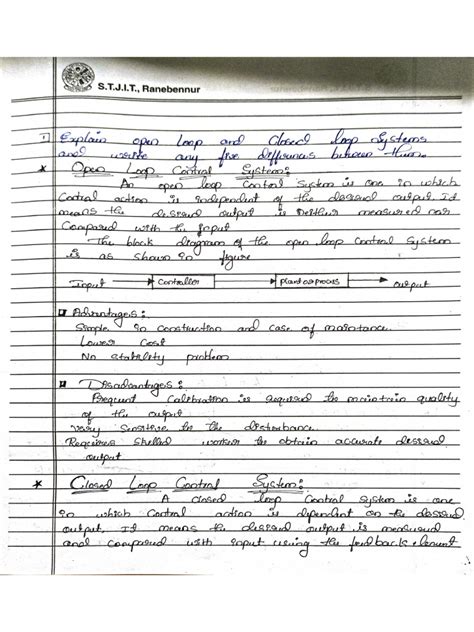 S.T.J.I.T., Ranebennur
1 Explain open loop and closed loop systems
and write any five differences between them.
* Open Loop Control System:
An open loop control system is one in which
Control action is independent of the desired output. It
means the desired output is neither measured nor
Compared with the input
The block diagram of the open loop control system
is as shown in figure
input Controller plant or process output
Advantages:
Simple in construction and ease of maintance
Lower Cost
No stability problem
Disadvantages:
Frequent Calibration is required to maintain quality
of the output
Very Sensitive to the disturbance.
Requires Skilled worker to obtain accurate desired
output
* Closed Loop Control System:
A closed loop control system is one
in which control action is dependent on the desired
output. It means the desired output is measured
and compared with input using the feedback element